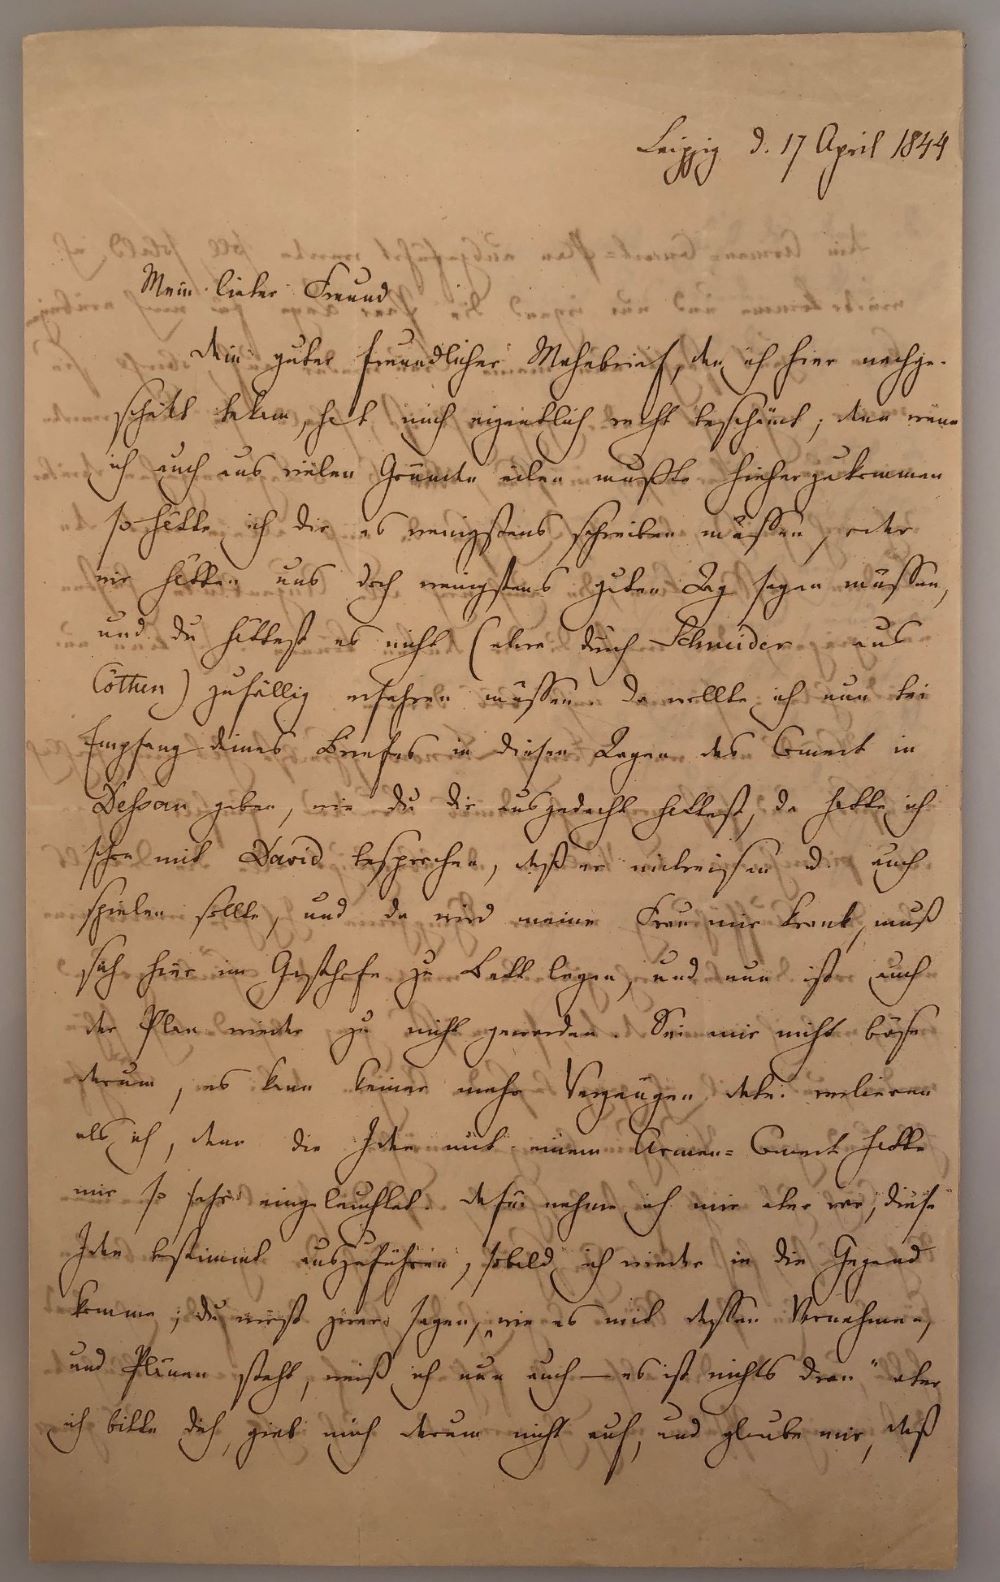 Leipzig d. 17 April 1844
Mein lieber Freund
Dein guter freundlicher Mahnbrief, den ich hier nachge-
schickt bekam, hat mich eigentlich recht beschämt; denn wenn
ich auch aus vielen Gründen eilen mußte hieherzukommen
so hätte ich dir es wenigstens schreiben müssen, oder
wir hätten uns doch wenigstens guten Tag sagen müssen,
und du hättest es nicht (etwa durch Schneider aus
Cöthen) zufällig erfahren müssen. Da wollte ich nun bei
Empfang deines Briefes in diesen Tagen das Concert in
Dessau geben, wie du dir ausgedacht hattest, da hatte ich
schon mit David besprochen, daß er mitreisen u. auch
spielen sollte, und da wird meine Frau mir krank, muß
sich hier im Gasthofe zu Bett legen, und nun ist auch
der Plan wieder zu nicht geworden. Sei mir nicht böse
darum, es kann keiner mehr Vergnügen dabei verlieren
als ich, denn die Idee mit einem Armen=Concert hatte
mir so sehr eingeleuchtet. Dafür nehme ich mir aber vor, diese
Idee bestimmt auszuführen, sobald ich wieder in die Gegend
komme; du wirst zwar sagen, „wie es mit dessen Vornehmen,
und Plänen steht, weiß ich nun auch — es ist nichts dran“ aber
ich bitte dich, gieb mich darum nicht auf, und glaube mir, daß